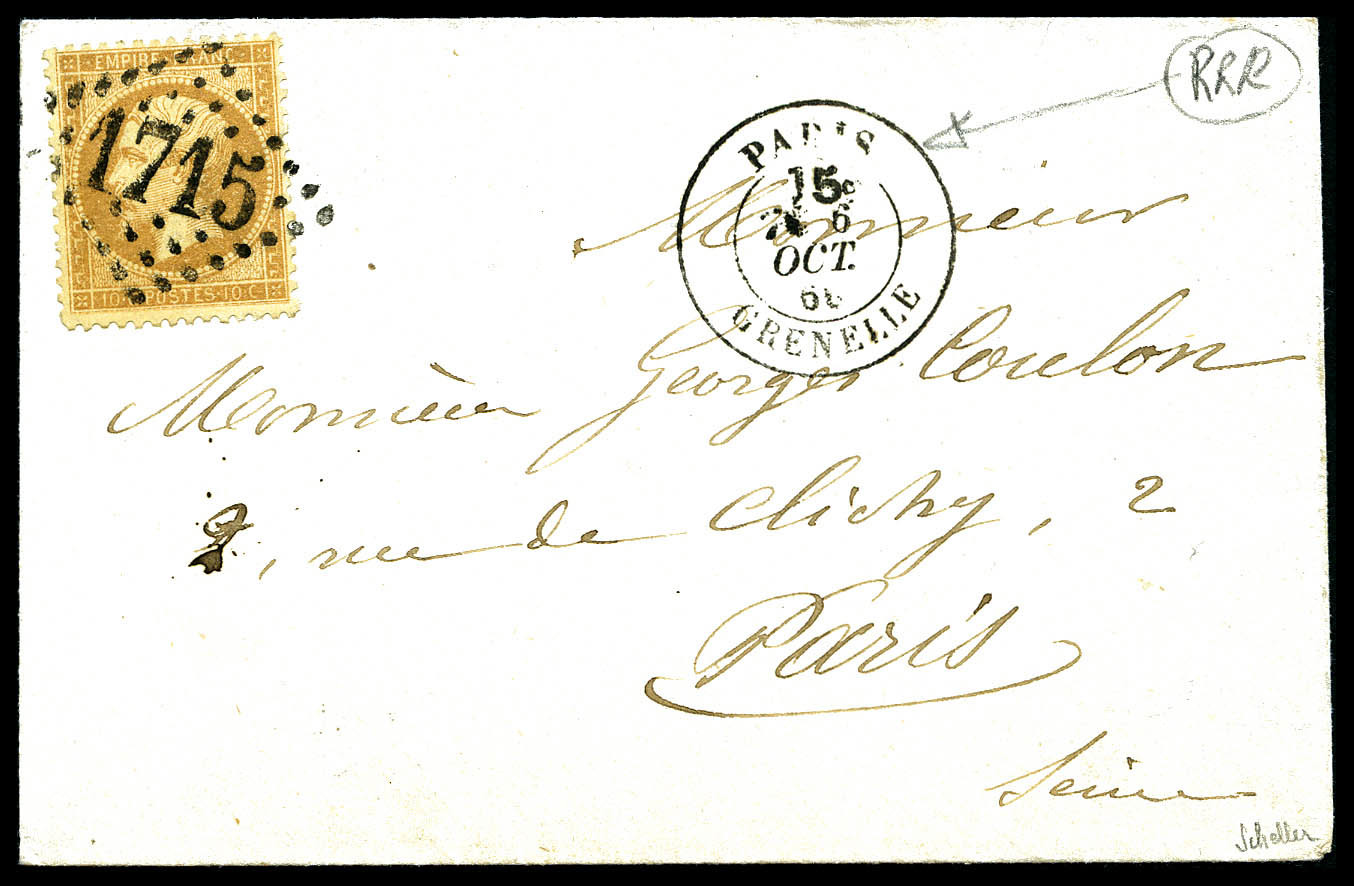 EMPIRE FRANC
1715
10 C POSTES 10 C
PARIS
15e
6
OCT.
GRENELLE
RRR
Monsieur
Georges Coulon
Monsieur
2, rue de Clichy, 2
Paris
Seine
Scheller